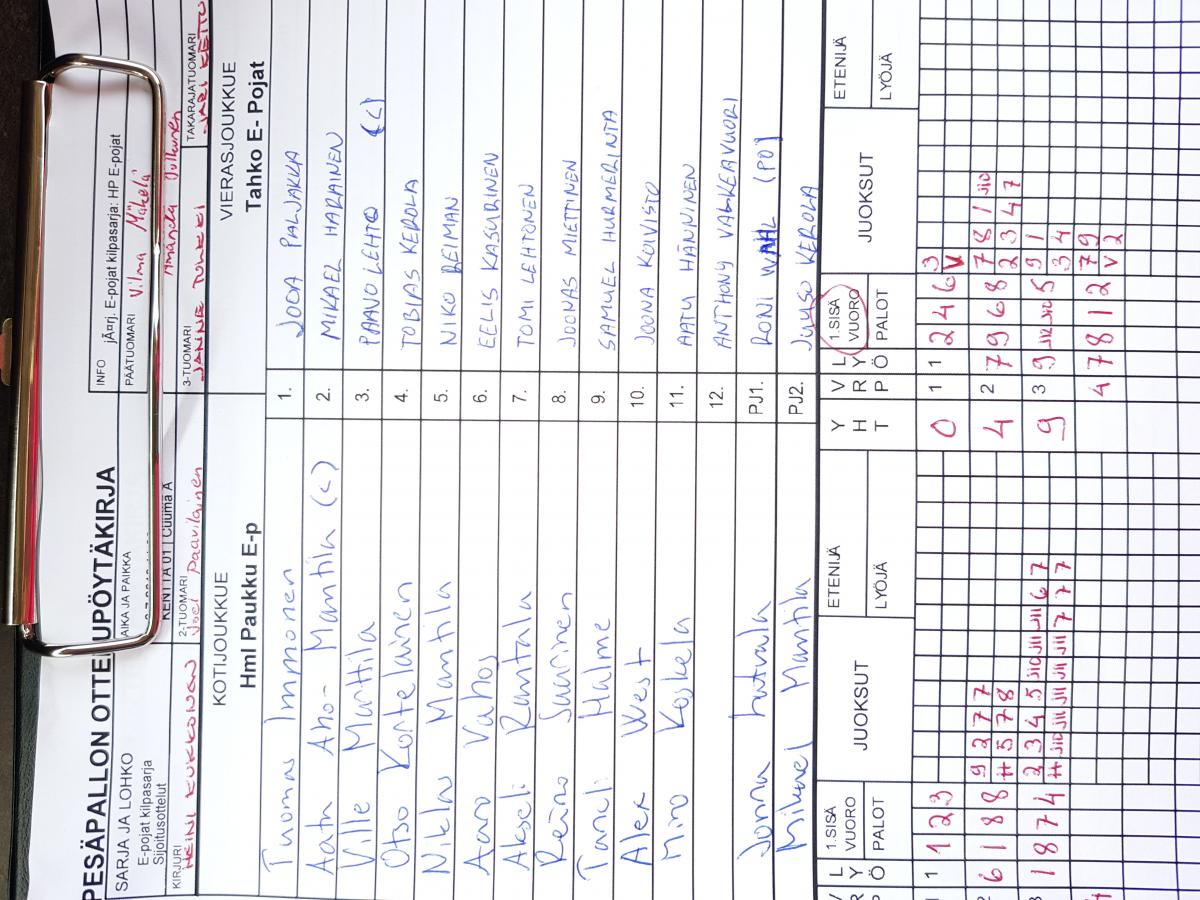 PESÄPALLON OTTELUPÖYTÄKIRJA
SARJA JA LOHKO
E-pojat kilpasarja
Sijoitusottelut
AIKA JA PAIKKA
KENTTÄ 01 | Cuuma A
INFO
jÄ¤rj. E-pojat kilpasarja: HP E-pojat
PÄÄTUOMARI
Vilma Mäkelä
Amanda
KIRJURI
HEINI KUKKONEN
2-TUOMARI
Joel Paavilainen
3-TUOMARI
JANNE
TAKARAJATUOMARI
JARI KEITU
KOTIJOUKKUE
Hml Paukku E-p
VIERASJOUKKUE
Tahko E- Pojat
Tuomas Immonen 1. JOOA PALJAKKA
Aatu Aho-Mantila (C) 2. MIKAEL HARJAINEN
Ville Marttila 3. PAAVO LEHTO (C)
Otso Kortelainen 4. TOBIAS KEROLA
Niklas Mantila 5. NIKO REIMAN
Aaro Vahos 6. EELIS KASURINEN
Akseli Rantala 7. TOMI LEHTONEN
Reino Saarinen 8. JOONAS MIETTINEN
Taneli Halme 9. SAMUEL HURMERINTA
Alex West 10. JOONA KOIVISTO
Miro Koskela 11. AATU HÄNNINEN
12. ANTHONY VALKEAVUORI
Jonna Lutvala PJ1. RONI WAHL (PJ)
Mikael Mantila PJ2. JUUSO KEROLA
V L
R Y
P Ö
1.SISÄ
VUORO
PALOT
JUOKSUT
ETENIJÄ
LYÖJÄ
Y
H
T
V L
R Y
P Ö
1.SISÄ
VUORO
PALOT
JUOKSUT
ETENIJÄ
LYÖJÄ
1 1 2 3 0 1 1 2 4 6 3
V
6 1 8 8 9 2 7 7 4 2 7 9 6 8 7 8 1 J10
# 5 7 8 2 3 4 7
1 8 7 4 2 3 4 5 J10 J11 J11 6 7 9 3 9 J12 J10 5 9 1
# J10 J11 J11 J11 J11 7 7 7 3 4
4 7 8 1 2 7 9
V 2